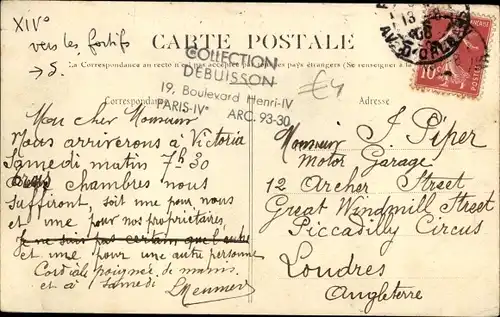 XIVº
vers les fortifs
→ S.
CARTE POSTALE
La Correspondance au recto n'est pas acceptée par tous les pays étrangers (Se renseigner à la Poste)
COLLECTION
DEBUISSON
19, Boulevard Henri-IV
PARIS-IVº ARC. 93-30
€4
Correspondance
Adresse
10c
Mon cher Monsieur
Nous arriverons à Victoria
Samedi matin 7h30
chambres nous
suffiront, soit une pour nous
et une pour nos propriétaires,
Je ne suis pas certain que
et une pour une autre personne
Cordiale poignée de mains
et à samedi
LMeunier
Monsieur J. Piper
Motor Garage
12 Archer Street
Great Windmill Street
Piccadilly Circus
Londres
Angleterre